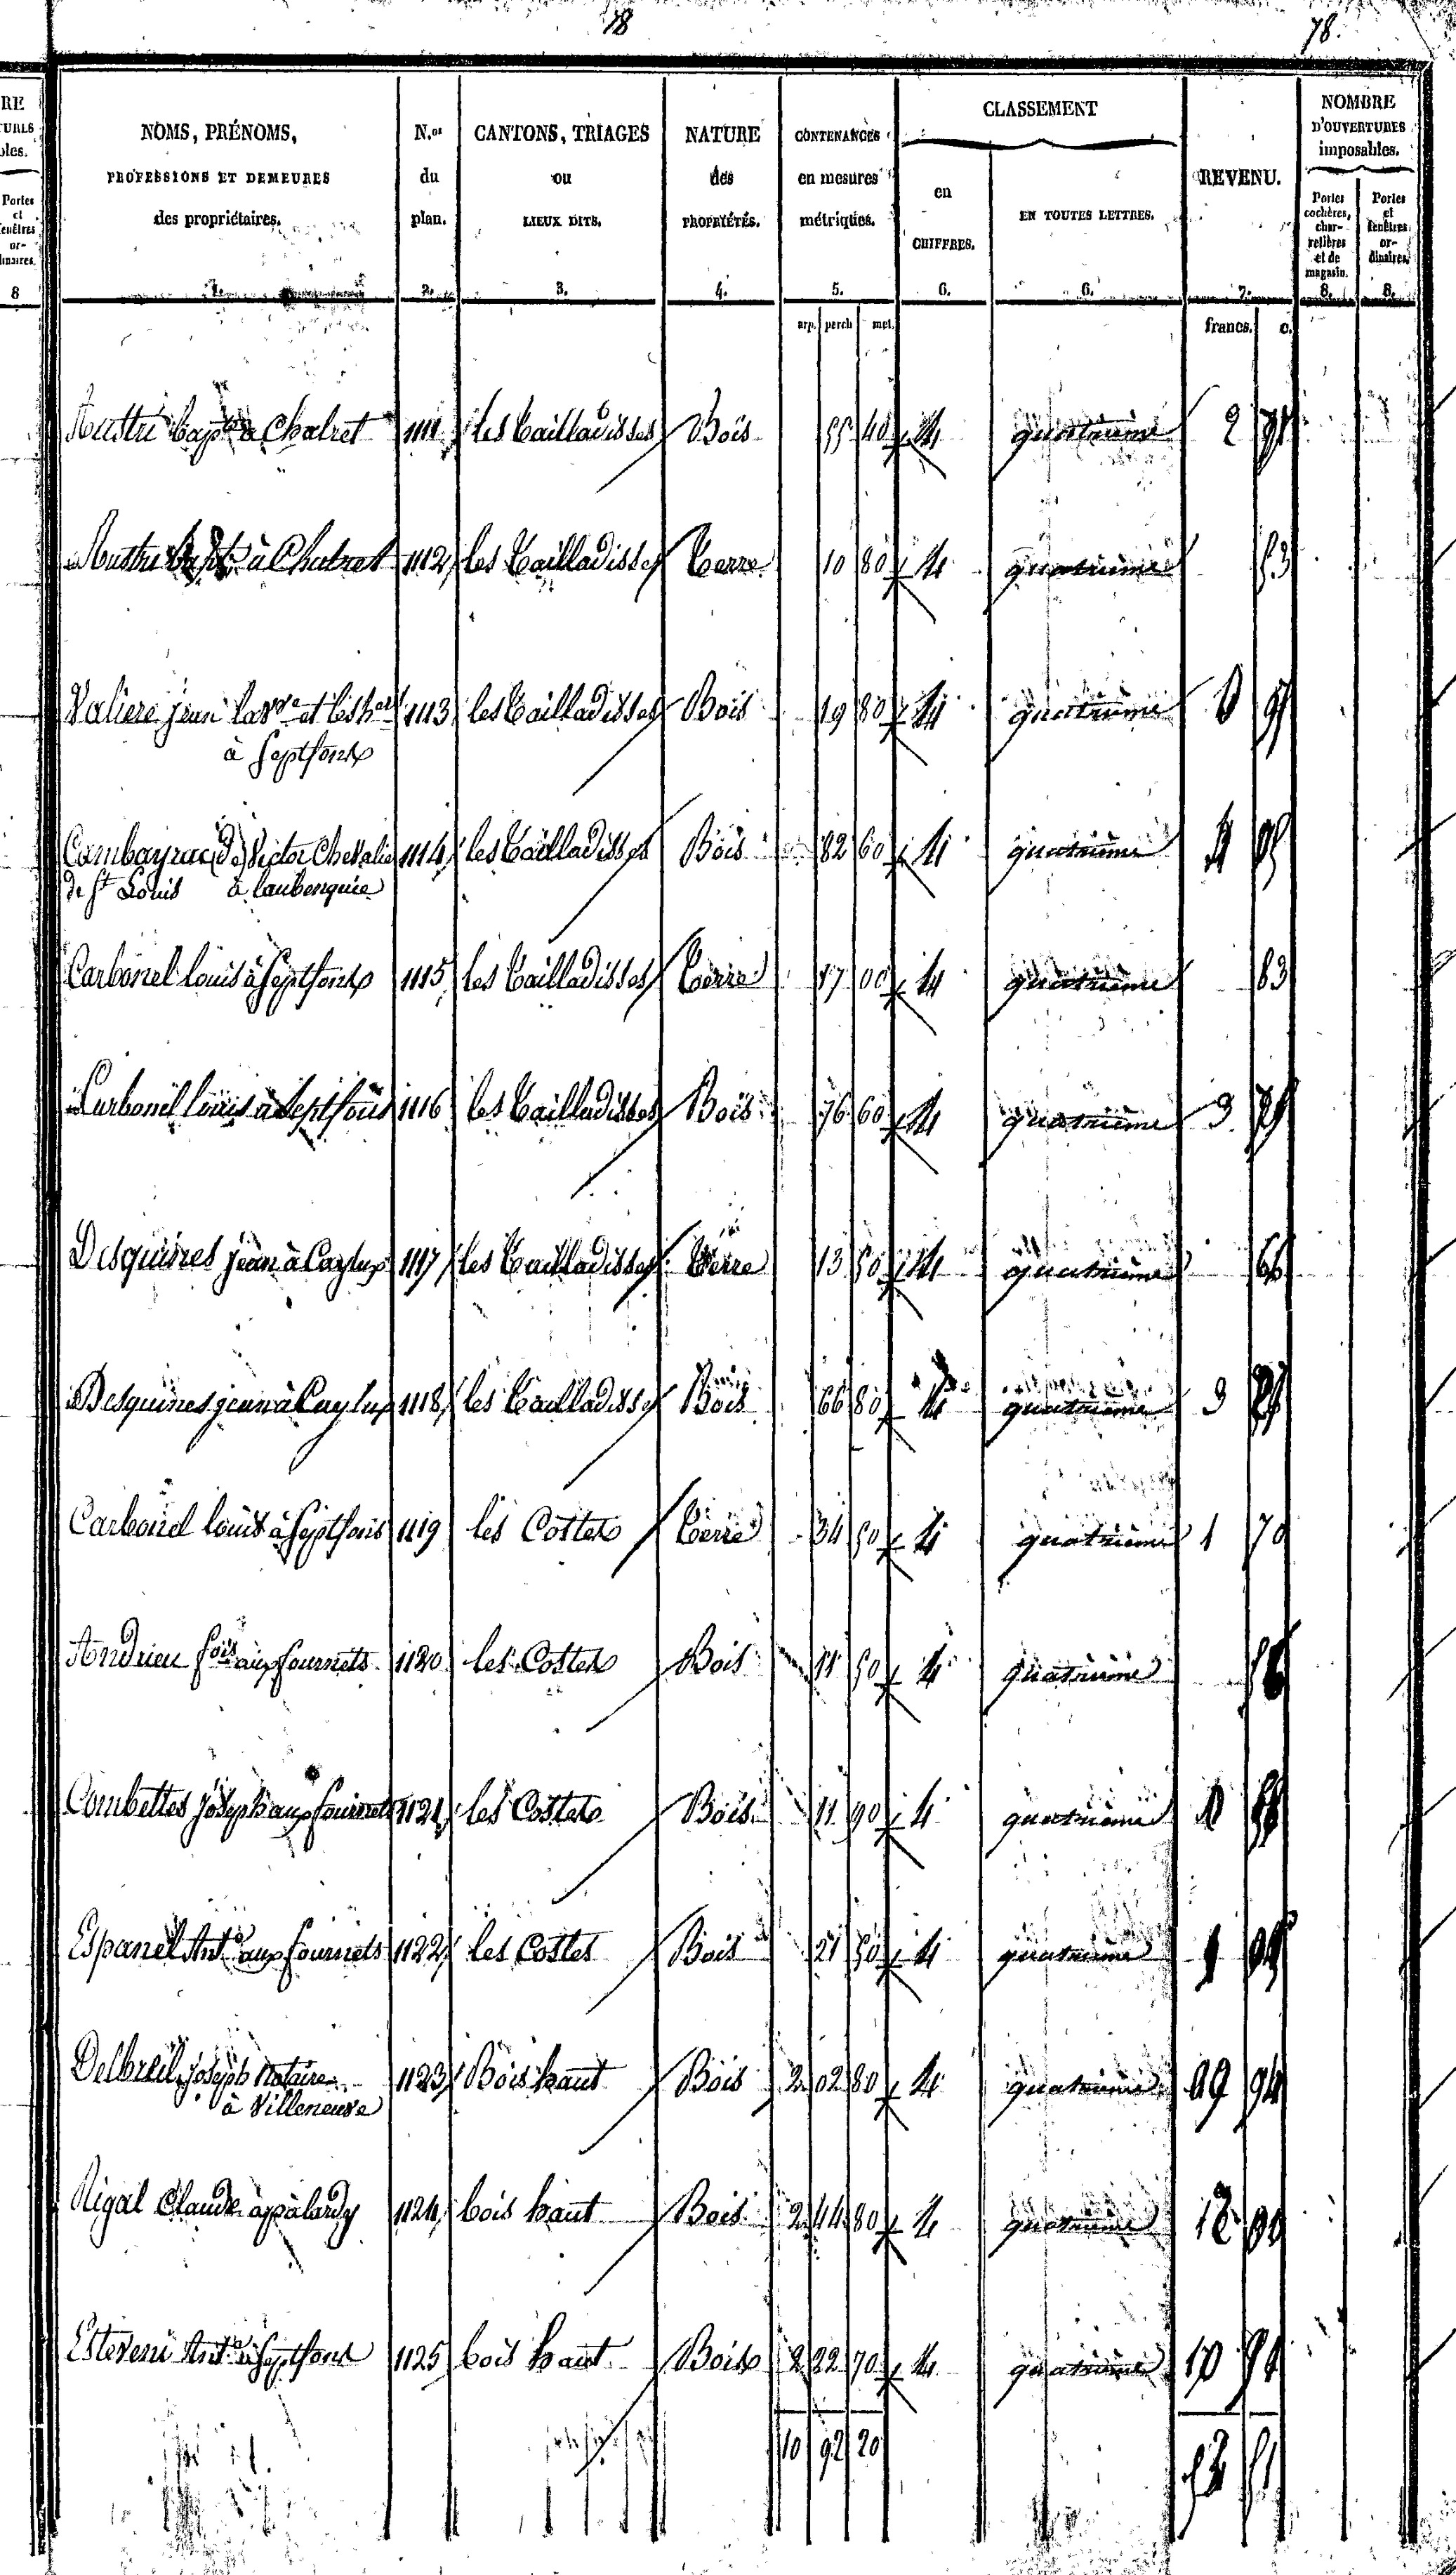 78
78.
RE
NOMS, PRÉNOMS,
PROFESSIONS ET DEMEURES
des propriétaires.
N.os
du
plan.
CANTONS, TRIAGES
ou
LIEUX DITS.
NATURE
des
PROPRIÉTÉS.
CONTENANCES
en mesures
métriques.
CLASSEMENT
en
CHIFFRES.
EN TOUTES LETTRES.
REVENU.
NOMBRE
D'OUVERTURES
imposables.
Portes
cochères,
char-
retières
et de
magasin.
Portes
et
fenêtres
or-
dinaires.
8 1. 2. 3. 4. 5. 6. 6. 7. 8. 8.
arp. perch met. francs. c.
à Chalret 1111 les Tailladisses Bois 55 40 4 quatrième 2
à Chalret 1112 les Tailladisses Terre 10 80 4 quatrième 53
Valiere jean la vve et les her 1113 les Tailladisses Bois 19 80 4 quatrième
à Septfonds
(De) Victor Chevalier 1114 les Tailladisses Bois 82 60 4 quatrième
de St Louis à laubenquie
Carbonel louis à Septfonds 1115 les Tailladisses Terre 17 00 4 quatrième 83
Carbonel louis à Septfons 1116 les Tailladisses Bois 76 60 4 quatrième 3
Desquines jean à Caylus 1117 les Tailladisses Terre 13 50 4 quatrième 66
Desquines jean à Caylus 1118 les Tailladisses Bois 66 80 4 quatrième 3
Carbonel louis à Septfons 1119 les Costes Terre 34 50 4 quatrième 1 70
Andrieu fois aux fournets 1120 les Costes Bois 11 50 4 quatrième
Combettes joseph aux fournets 1121 les Costes Bois 11 90 4 quatrième
Espanel Ante aux fournets 1122 les Costes Bois 21 50 4 quatrième
Delbreil joseph Notaire 1123 Bois haut Bois 2 02 80 4 quatrième 94
à Villeneuve
Rigal Claude à 1124 bois haut Bois 2 44 80 4 quatrième
Esteveni Ante à Septfons 1125 bois haut Bois 2 22 70 4 quatrième
10 92 20